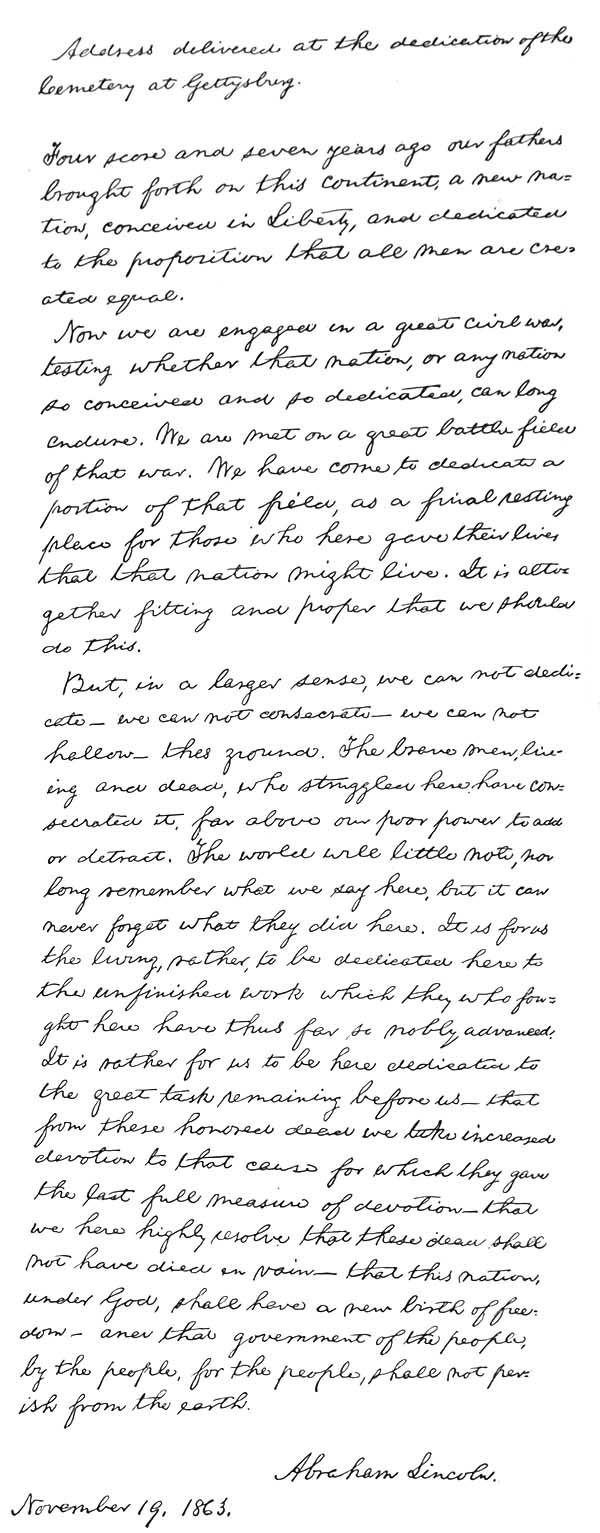 Address delivered at the dedication of the
Cemetery at Gettysburg.
Four score and seven years ago our fathers
brought forth on this continent, a new na=
tion, conceived in Liberty, and dedicated
to the proposition that all men are cre=
ated equal.
Now we are engaged in a great civil war,
testing whether that nation, or any nation
so conceived and so dedicated, can long
endure. We are met on a great battle field
of that war. We have come to dedicate a
portion of that field, as a final resting
place for those who here gave their lives
that that nation might live. It is alto=
gether fitting and proper that we should
do this.
But, in a larger sense, we can not dedi=
cate— we can not consecrate— we can not
hallow— this ground. The brave men, liv=
ing and dead, who struggled here have con=
secrated it, far above our poor power to add
or detract. The world will little note, nor
long remember what we say here, but it can
never forget what they did here. It is for us
the living, rather, to be dedicated here to
the unfinished work which they who fou=
ght here have thus far so nobly advanced.
It is rather for us to be here dedicated to
the great task remaining before us— that
from these honored dead we take increased
devotion to that cause for which they gave
the last full measure of devotion— that
we here highly resolve that these dead shall
not have died in vain— that this nation,
under God, shall have a new birth of free=
dom— and that government of the people,
by the people, for the people, shall not per=
ish from the earth.
Abraham Lincoln.
November 19, 1863.